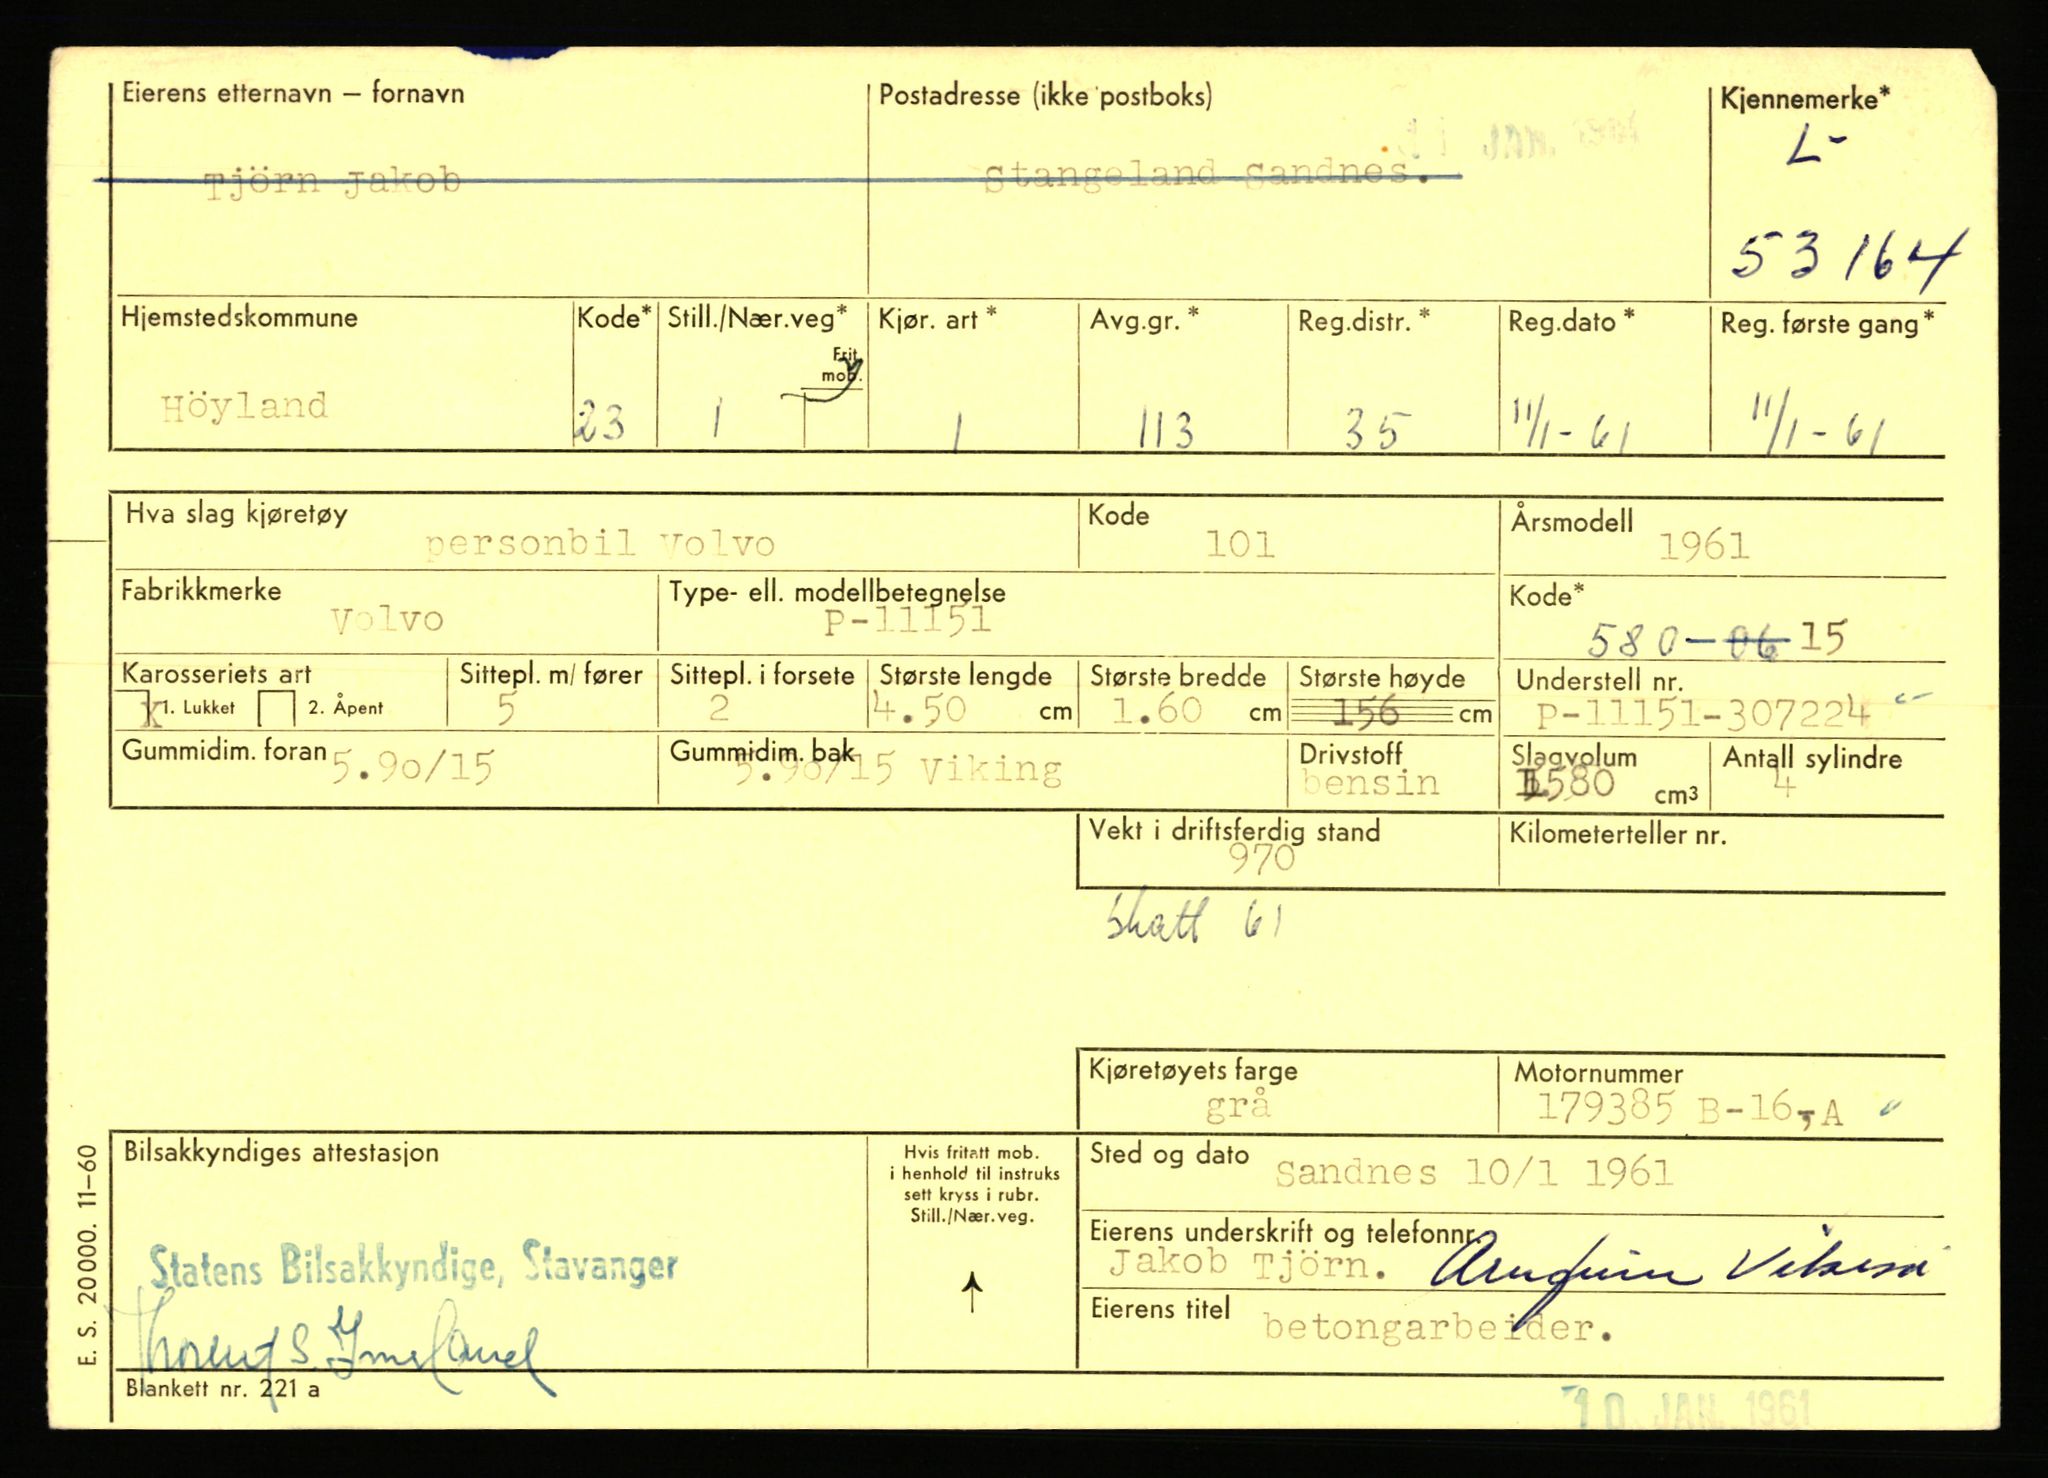 Eierens etternavn – fornavn
Tjörn Jakob
Postadresse (ikke postboks)
Stangeland Sandnes.
Kjennemerke*
L-
53164
Hjemstedskommune
Höyland
Kode*
23
Still./Nær.veg*
Frit. mob.
1
Kjør. art *
1
Avg.gr. *
113
Reg.distr. *
35
Reg.dato *
11/1-61
Reg. første gang*
11/1-61
Hva slag kjøretøy
personbil Volvo
Kode
101
Årsmodell
1961
Fabrikkmerke
Volvo
Type- ell. modellbetegnelse
P-11151
Kode*
580-06 15
Karosseriets art
x 1. Lukket 2. Åpent
Sittepl. m/ fører
5
Sittepl. i forsete
2
Største lengde
4.50 cm
Største bredde
1.60 cm
Største høyde
156 cm
Understell nr.
P-11151-307224
Gummidim. foran
5.90/15
Gummidim. bak
5.90/15 Viking
Drivstoff
bensin
Slagvolum
1580 cm3
Antall sylindre
4
Vekt i driftsferdig stand
970
Kilometerteller nr.
Skatt 61
Kjøretøyets farge
grå
Motornummer
179385 B-16,-A
Bilsakkyndiges attestasjon
Statens Bilsakkyndige, Stavanger
Hvis fritatt mob.
i henhold til instruks
sett kryss i rubr.
Still./Nær.veg.
Sted og dato
Sandnes 10/1 1961
Eierens underskrift og telefonnr.
Jakob Tjörn.
Eierens titel
betongarbeider.
Blankett nr. 221 a
E. S. 20000. 11-60
10. JAN. 1961